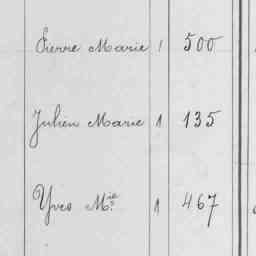 Pierre Marie 1 500
Julien Marie 1 135
Yves Mie 1 467